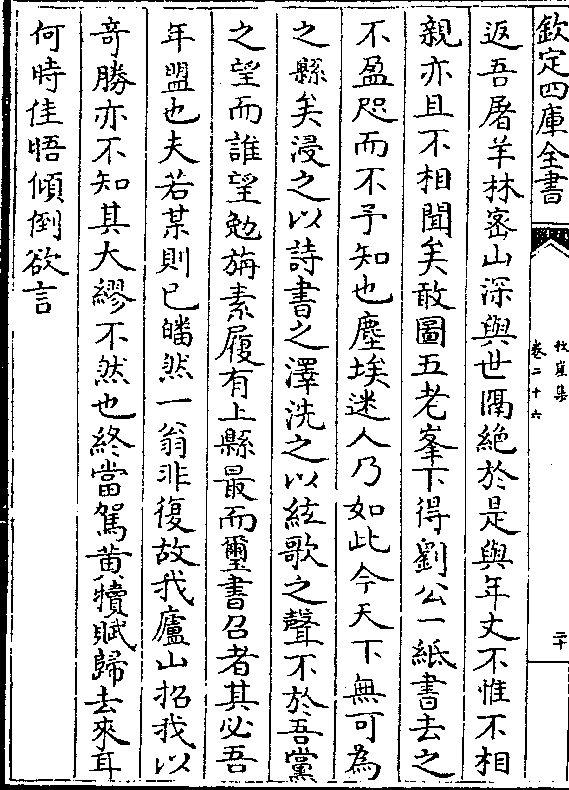 欽定四庫全書
秋崖集
卷二十六
二十
返吾屠羊林宻山深與世隔絶於是與年丈不惟不相
親亦且不相聞矣敢圖五老峯下得劉公一紙書去之
不盈咫而不予知也塵埃迷人乃如此今天下無可為
之縣矣浸之以詩書之澤洗之以絃歌之聲不於吾黨
之望而誰望勉旃素履有上縣最而璽書召者其必吾
年盟也夫若某則已皤然一翁非復故我廬山招我以
竒勝亦不知其大繆不然也終當駕黄犢賦歸去來耳
何時佳晤傾倒欲言